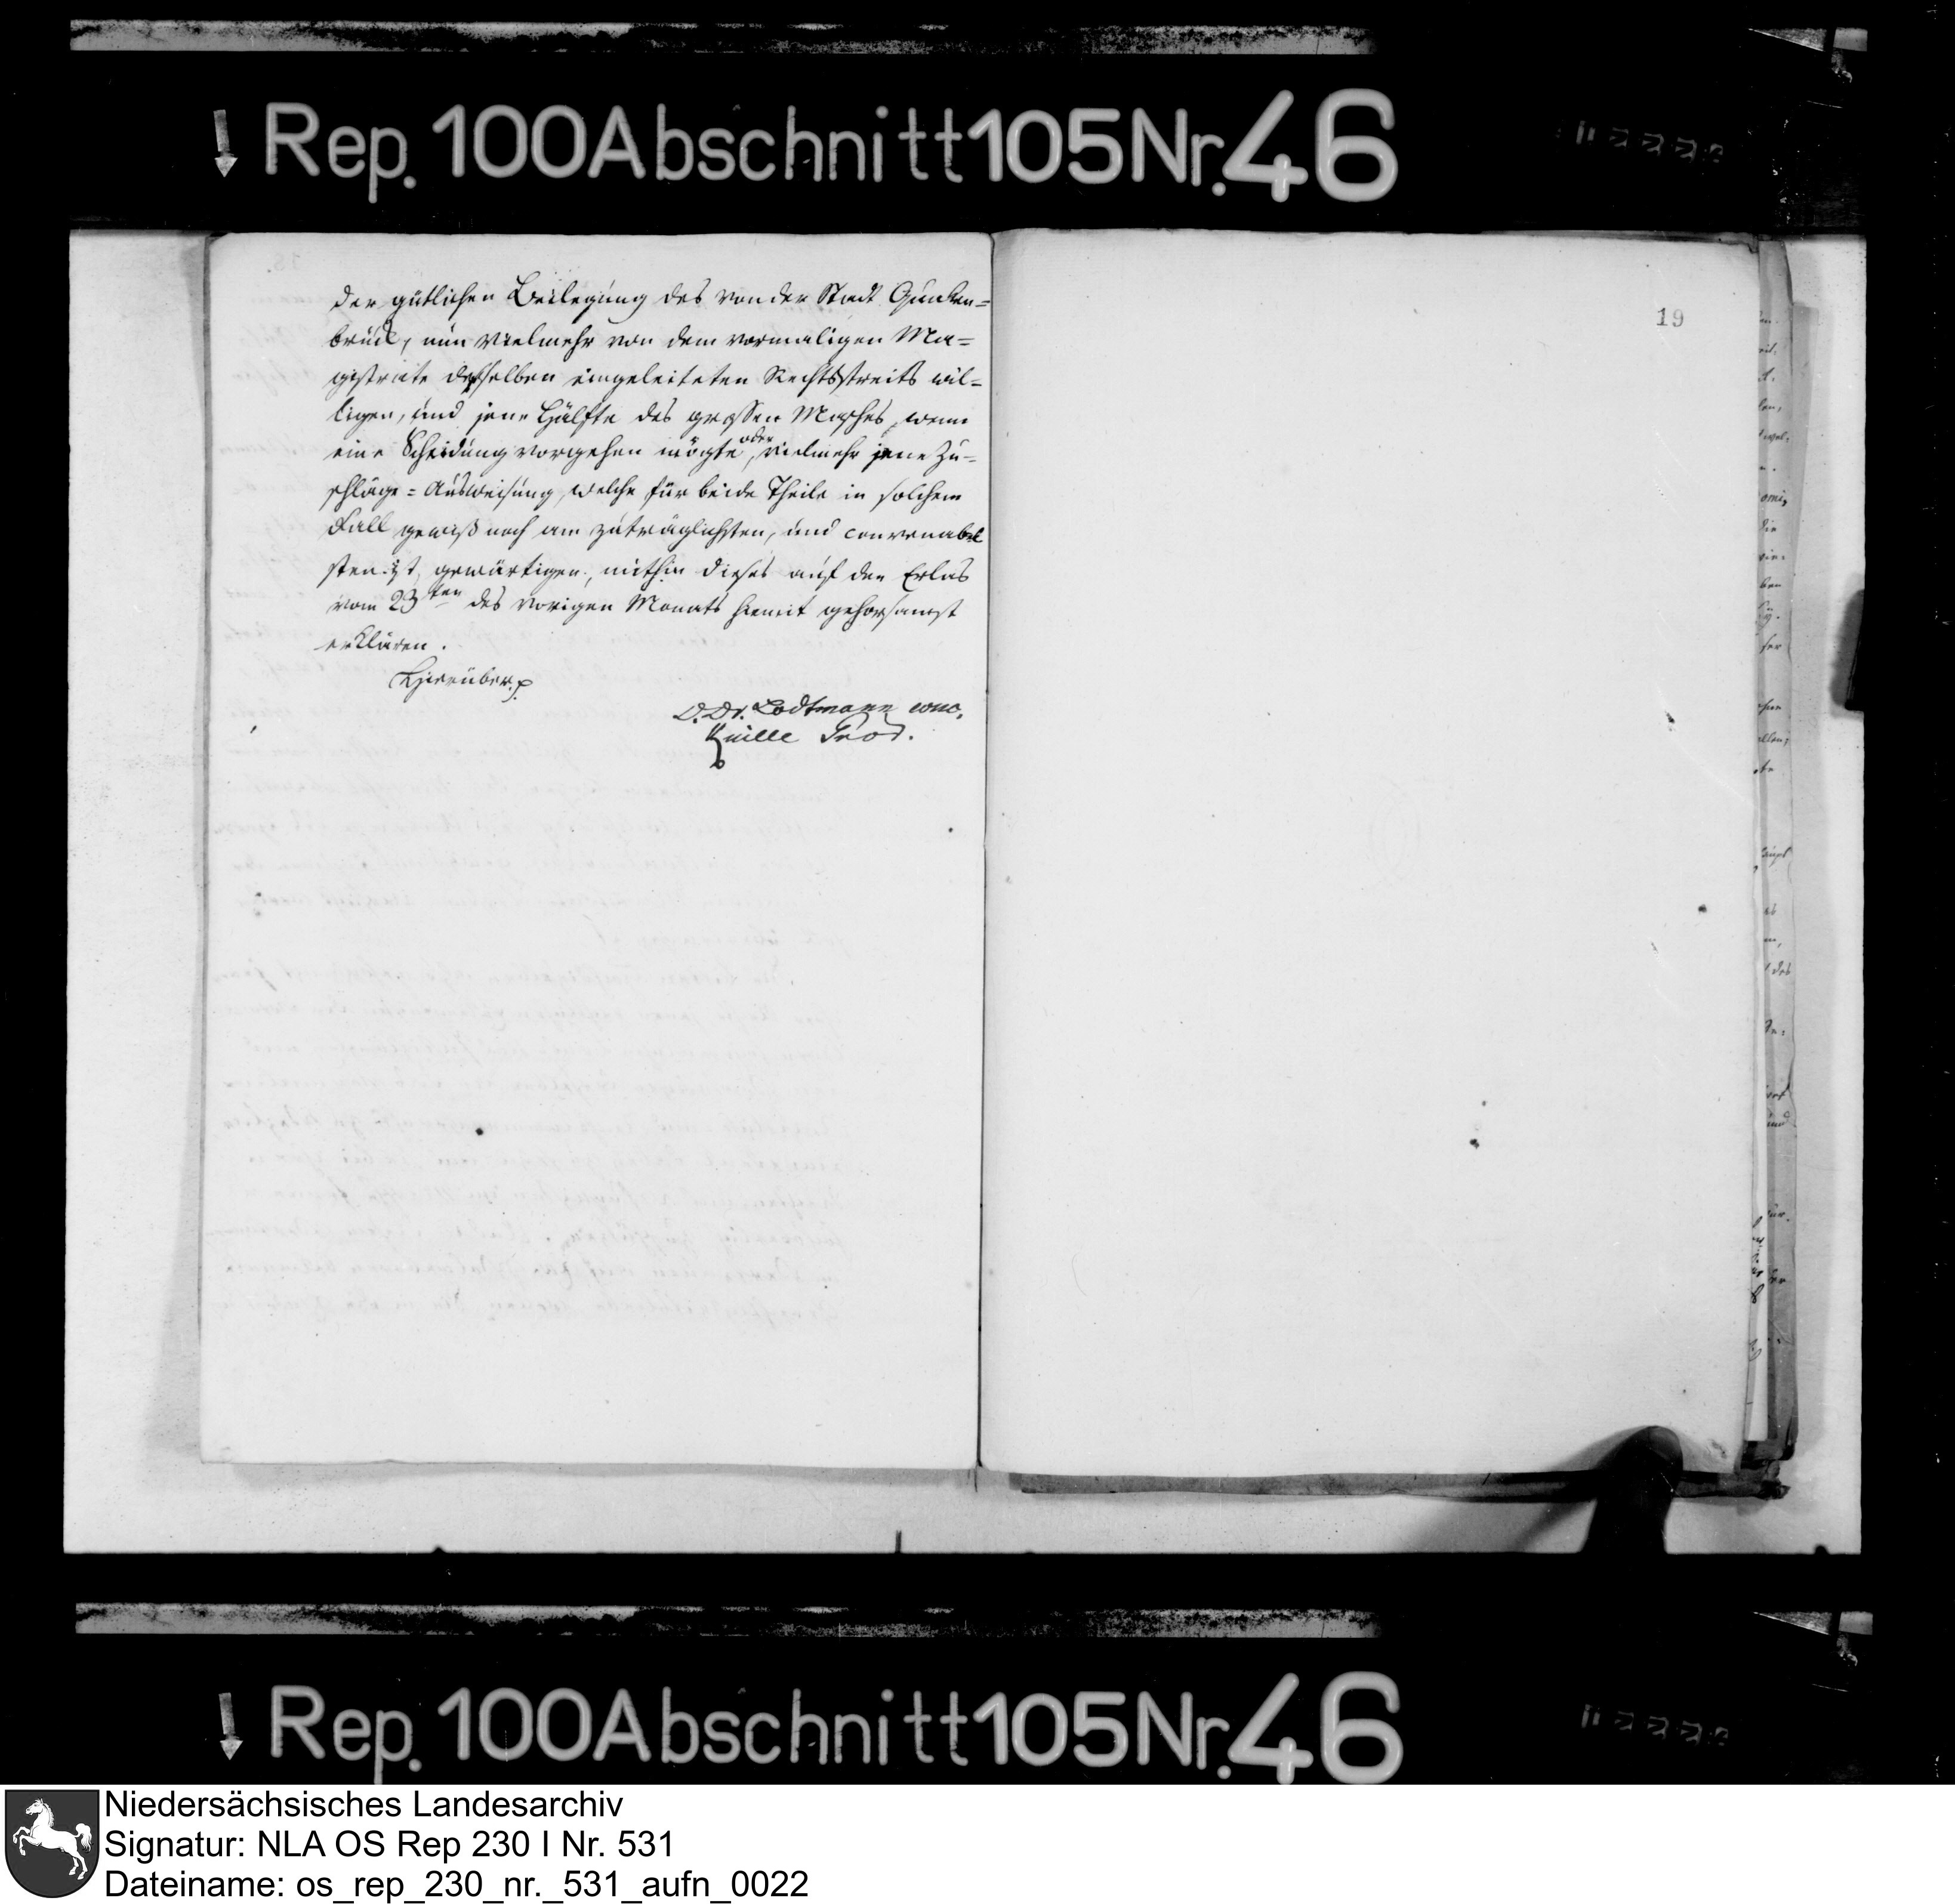 Rep. 100 Abschnitt 105 Nr. 46
der gütlichen Beilegung des von der Stadt Quaken=
brück, nun vielmehr von dem vormaligen Ma=
gistrate desselben eingeleiteten Rechtsstreits wil=
ligen, und jene Hälfte des grossen Masches, wenn
eine Scheidung vorgehen mögte, oder vielmehr jene Zu=
schläge=Ausweisung, welche für beide Theile in solchem
Fall gewiß noch am zuträglichsten, und convenabel
sten ist, gewärtigen, mithin dieses auf den Erlas
vom 23ten des vorigen Monats hiemit gehorsamst
erklären.
Hierüber p
D. Dr. Lodtmann conc.
19
Rep. 100 Abschnitt 105 Nr. 46
Niedersächsisches Landesarchiv
Signatur: NLA OS Rep 230 I Nr. 531
Dateiname: os_rep_230_nr._531_aufn_0022